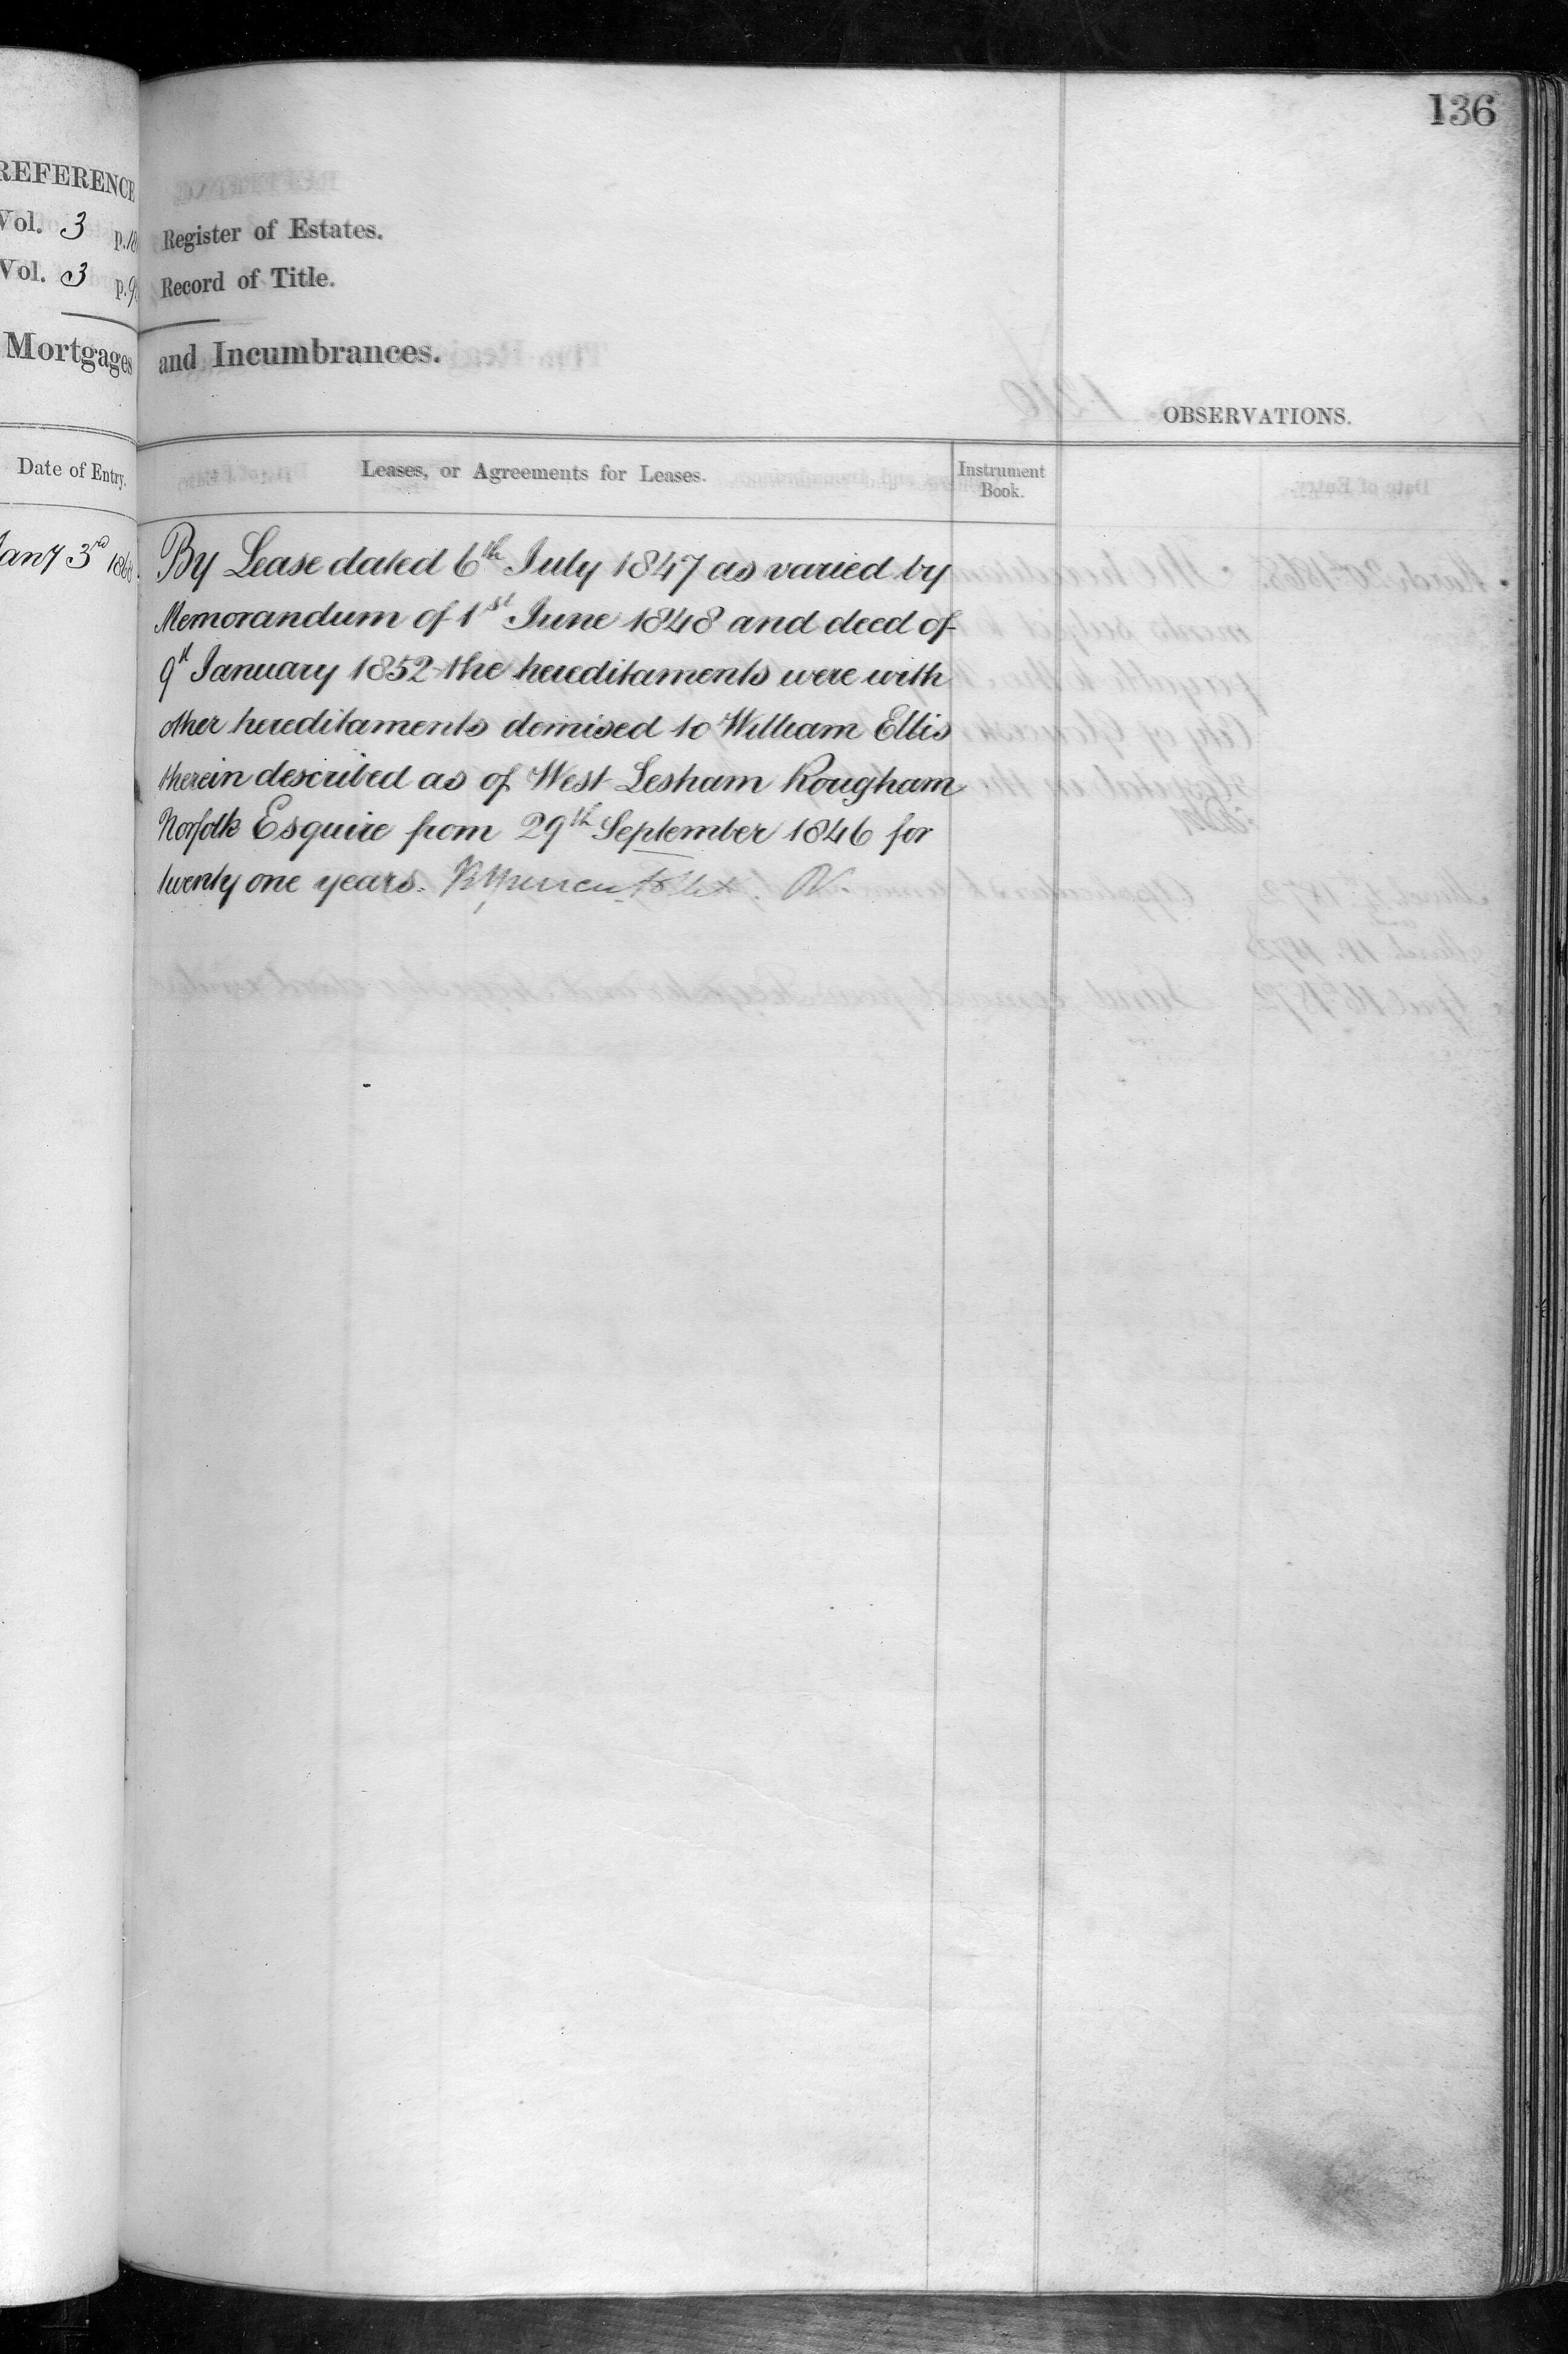 136
REFERENCE
Vol. 3 p. 18
Register of Estates.
Vol. 3 p. 9
Record of Title.
Mortgages
and Incumbrances.
OBSERVATIONS.
Date of Entry.
Leases, or Agreements for Leases.
Instrument
Book.
Jany 3rd 1868
By Lease dated 6th July 1847 as varied by
Memorandum of 1st June 1848 and deed of
9th January 1852 the hereditaments were with
other hereditaments demised to William Ellis
therein described as of West Lesham Rougham
Norfolk Esquire from 29th September 1846 for
twenty one years.